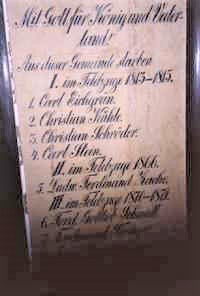 Mit Gott für König und Vater-
land!
Aus dieser Gemeinde starben
I. im Feldzuge 1813-1815.
1. Carl Eichgrün.
2. Christian Kühle.
3. Christian Schröder.
4. Carl Stein.
II. im Feldzuge 1866.
5. Ludw. Ferdinand
III. im Feldzuge 1870-1871.
6. Ferd.
7.